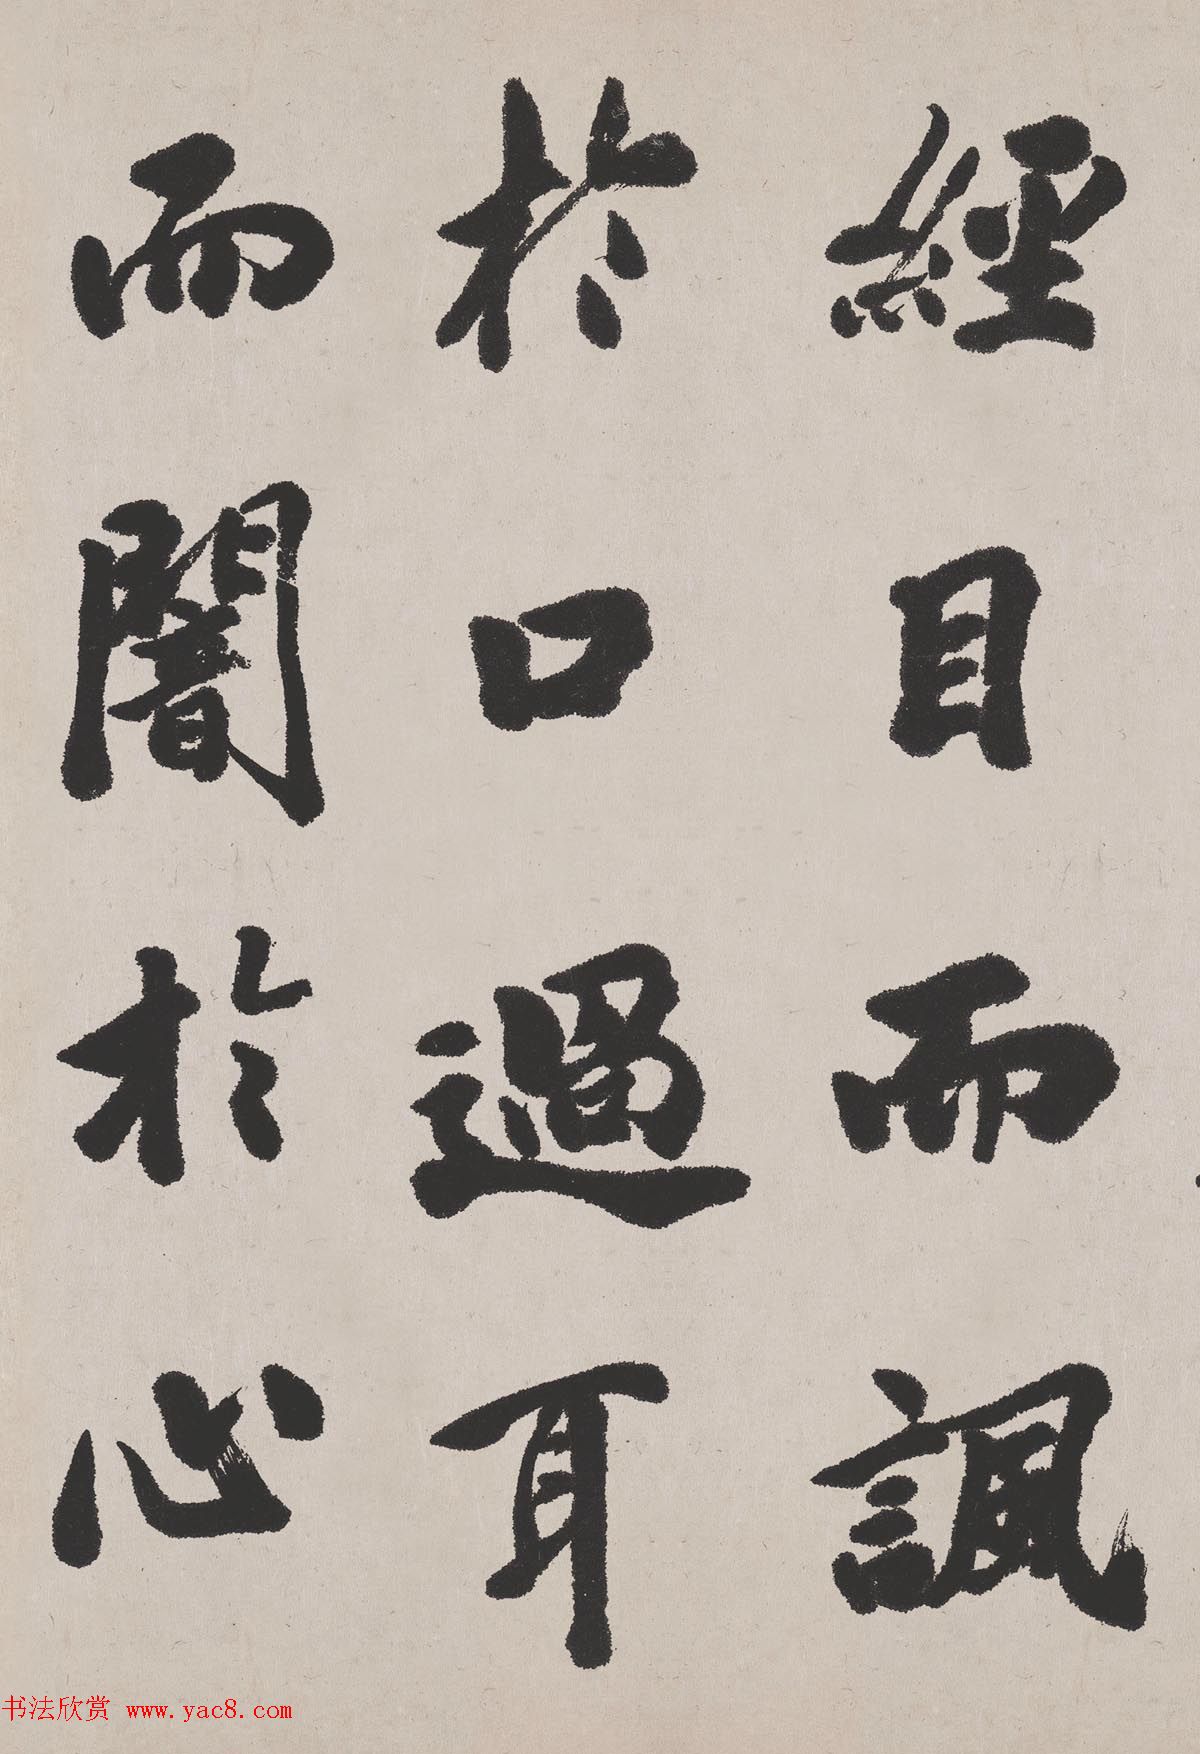 經目而諷
於口過耳
而闇於心
书法欣赏 www.yac8.com